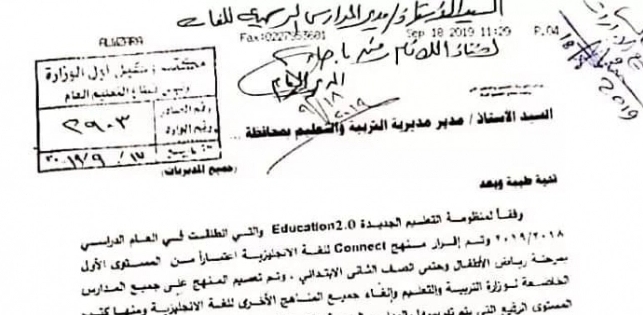 السيد الأستاذ / مدير المدارس الرسمية للغات
ALWZARA Fax:0227953601 Sep 18 2019 11:29 P.04
لاتخاذ اللازم
مكتب وكيل أول الوزارة
ورئيس قطاع التعليم العام
رقم الصادر
رقم الوارد
٢٩٠٣
٢٠١٩/٩/١٧
٩/١٨
٢٠١٩
السيد الأستاذ / مدير مديرية التربية والتعليم بمحافظة ...
(جميع المديريات)
تحية طيبة وبعد
وفقاً لمنظومة التعليم الجديدة Education2.0 والتي انطلقت في العام الدراسي
٢٠١٩/٢٠١٨ وتم إقرار منهج Connect للغة الانجليزية اعتباراً من المستوى الأول
بمرحلة رياض الأطفال وحتى الصف الثانى الابتدائي ، وتم تعميم المنهج على جميع المدارس
الخاضعة لوزارة التربية والتعليم وإلغاء جميع المناهج الأخرى للغة الانجليزية ومنها
المستوى الرفيع التي يتم تدريسها